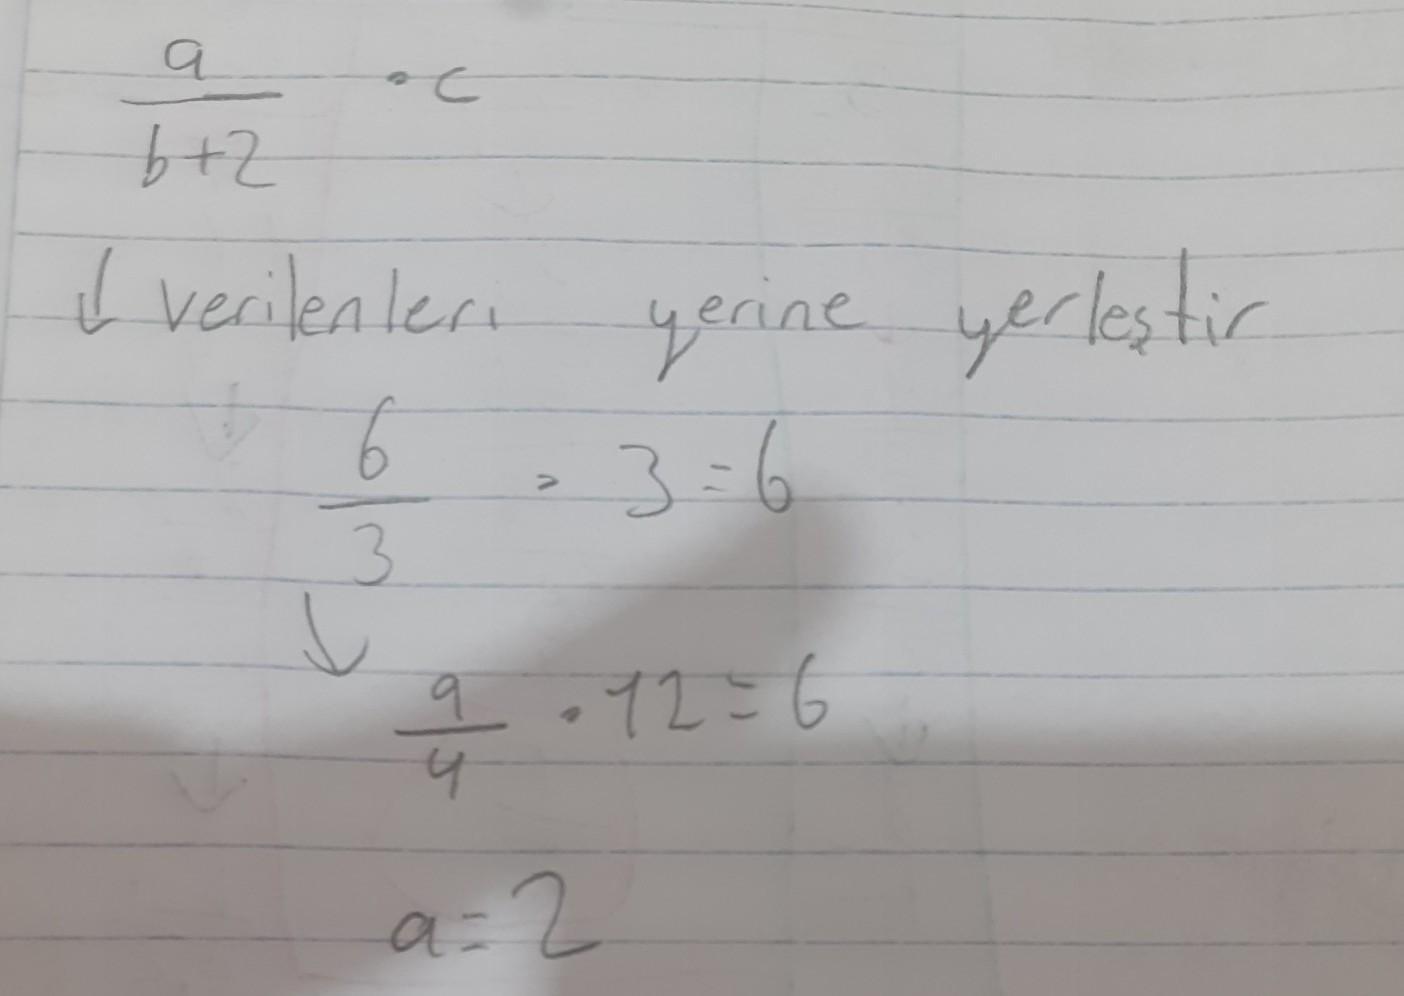 a
b+2 · c
↓ verilenleri yerine yerleştir
6
3 · 3 = 6
↓
a
4 · 12 = 6
a = 2